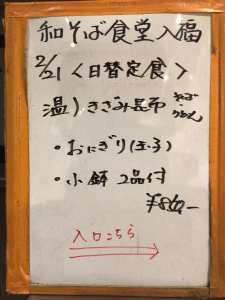 和そば食堂入福
2/21 <日替定食>
温) きざみ昆布 そば・うどん
・おにぎり(1ヶ)
・小鉢 2品付
¥880-
入口こちら